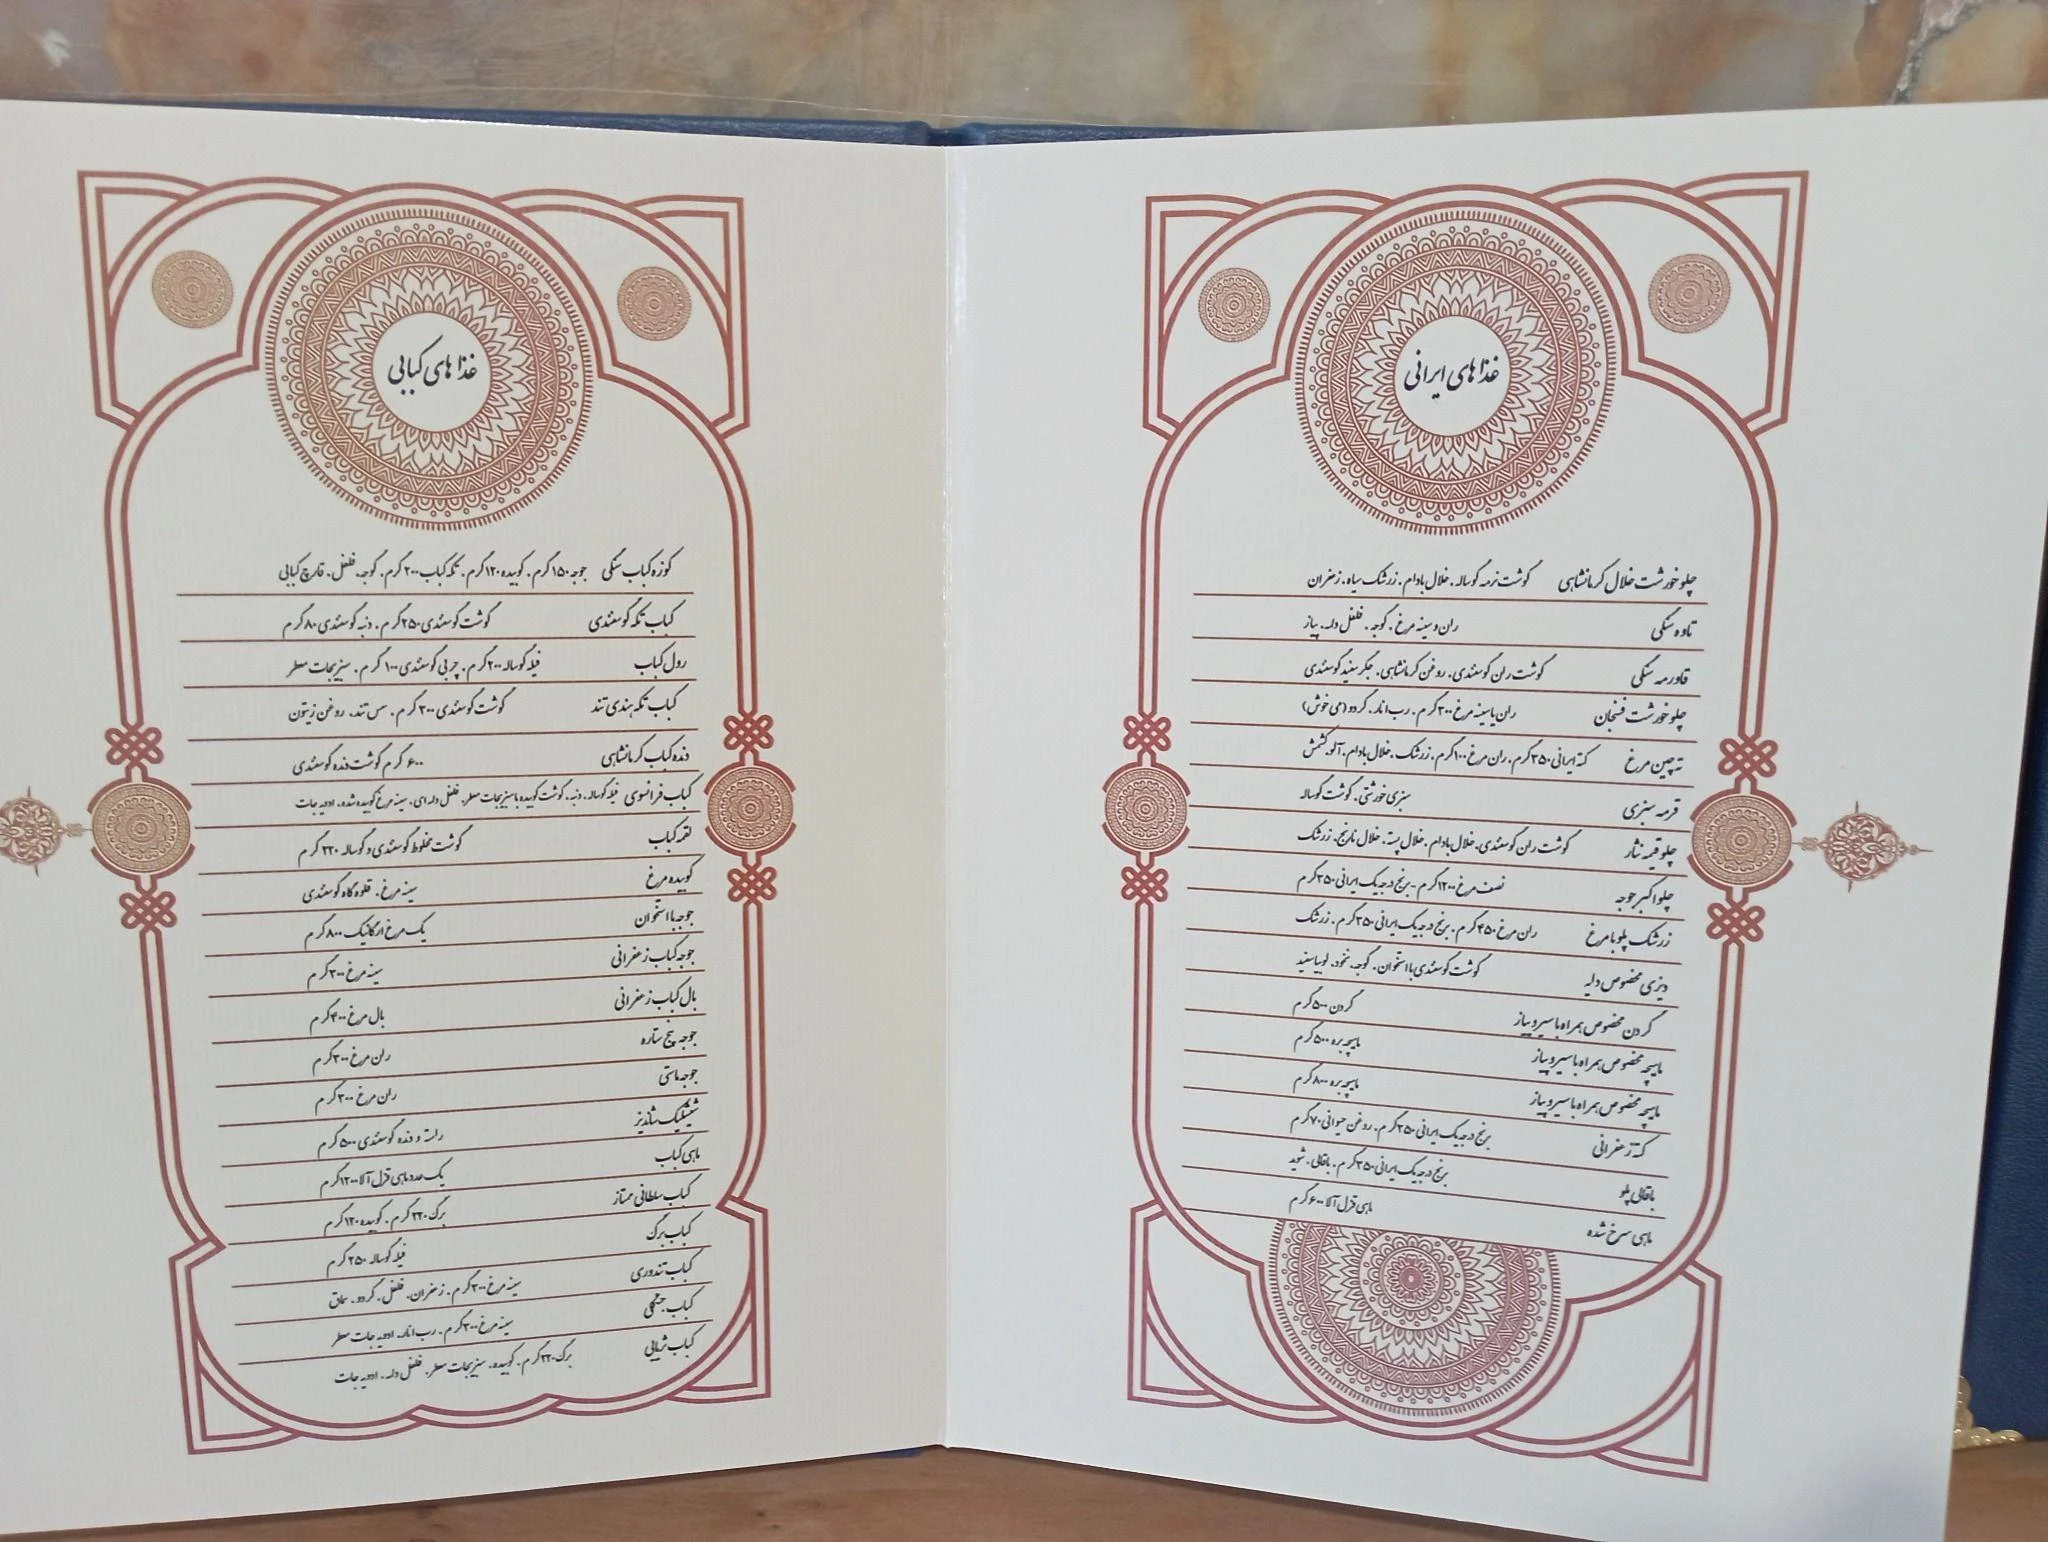 غذاهای ایرانی
چلو خورشت خلال کرمانشاهی گوشت نرمه گوساله، خلال بادام، زرشک سیاه، زعفران
تاوه سنگی ران و سینه مرغ، گوجه، فلفل دلمه، پیاز
قاورمه سنگی گوشت ران گوسفندی، روغن کرمانشاهی، جگر سفید گوسفندی
چلو خورشت فسنجان ران یا سینه مرغ ۳۰۰ گرم، رب انار، گردو (می خوش)
ته چین مرغ کته ایرانی ۳۵۰ گرم، ران مرغ ۱۰۰ گرم، زرشک، خلال بادام، آلو، کشمش
قرمه سبزی سبزی خورشتی، گوشت گوساله
چلو قیمه نثار گوشت ران گوسفندی، خلال بادام، خلال پسته، خلال نارنج، زرشک
چلو اکبر جوجه نصف مرغ ۱۲۰۰ گرم - برنج درجه یک ایرانی ۳۵۰ گرم
زرشک پلو با مرغ ران مرغ ۴۵۰ گرم، برنج درجه یک ایرانی ۳۵۰ گرم، زرشک
دیزی مخصوص دلیه گوشت گوسفندی با استخوان، گوجه، نخود، لوبیا سفید
گردن مخصوص همراه با سیر و پیاز گردن ۵۰۰ گرم
ماهیچه مخصوص همراه با سیر و پیاز ماهیچه بره ۵۰۰ گرم
ماهیچه مخصوص همراه با سیر و پیاز ماهیچه بره ۸۰۰ گرم
کته زعفرانی برنج درجه یک ایرانی ۳۵۰ گرم، روغن حیوانی ۷۰ گرم
باقالی پلو برنج درجه یک ایرانی ۳۵۰ گرم، باقالی، شوید
ماهی سرخ شده ماهی قزل آلا ۶۰۰ گرم
غذاهای کبابی
کوزه کباب سنگی جوجه ۱۵۰ گرم، کوبیده ۱۲۰ گرم، تکه کباب ۲۰۰ گرم، گوجه، فلفل، قارچ کبابی
کباب تکه گوسفندی گوشت گوسفندی ۲۵۰ گرم، دنبه گوسفندی ۸۰ گرم
رول کباب فیله گوساله ۲۰۰ گرم، چربی گوسفندی ۱۰۰ گرم، سبزیجات معطر
کباب تکه هندی تند گوشت گوسفندی ۳۰۰ گرم، سس تند، روغن زیتون
دنده کباب کرمانشاهی ۶۰۰ گرم گوشت دنده گوسفندی
کباب فرانسوی فیله گوساله، دنبه، گوشت کوبیده با سبزیجات معطر، فلفل دلمه ای، سینه مرغ کوبیده شده، ادویه جات
لقمه کباب گوشت مخلوط گوسفندی و گوساله ۲۲۰ گرم
کوبیده مرغ سینه مرغ، قلوه گاه گوسفندی
جوجه با استخوان یک مرغ ارگانیک ۸۰۰ گرم
جوجه کباب زعفرانی سینه مرغ ۳۰۰ گرم
بال کباب زعفرانی بال مرغ ۴۰۰ گرم
جوجه پنج ستاره ران مرغ ۳۰۰ گرم
جوجه ماستی ران مرغ ۳۰۰ گرم
شیشلیک شاندیز راسته و دنده گوسفندی ۵۰۰ گرم
ماهی کباب یک عدد ماهی قزل آلا ۱۲۰۰ گرم
کباب سلطانی ممتاز برگ ۲۲۰ گرم، کوبیده ۱۲۰ گرم
کباب برگ فیله گوساله ۲۵۰ گرم
کباب تندوری سینه مرغ ۳۰۰ گرم، زعفران، فلفل، گردو، سماق
کباب سینه مرغ ۳۰۰ گرم، رب انار، ادویه جات معطر
کباب برگ ۲۲۰ گرم، کوبیده، سبزیجات معطر، فلفل دلمه، ادویه جات